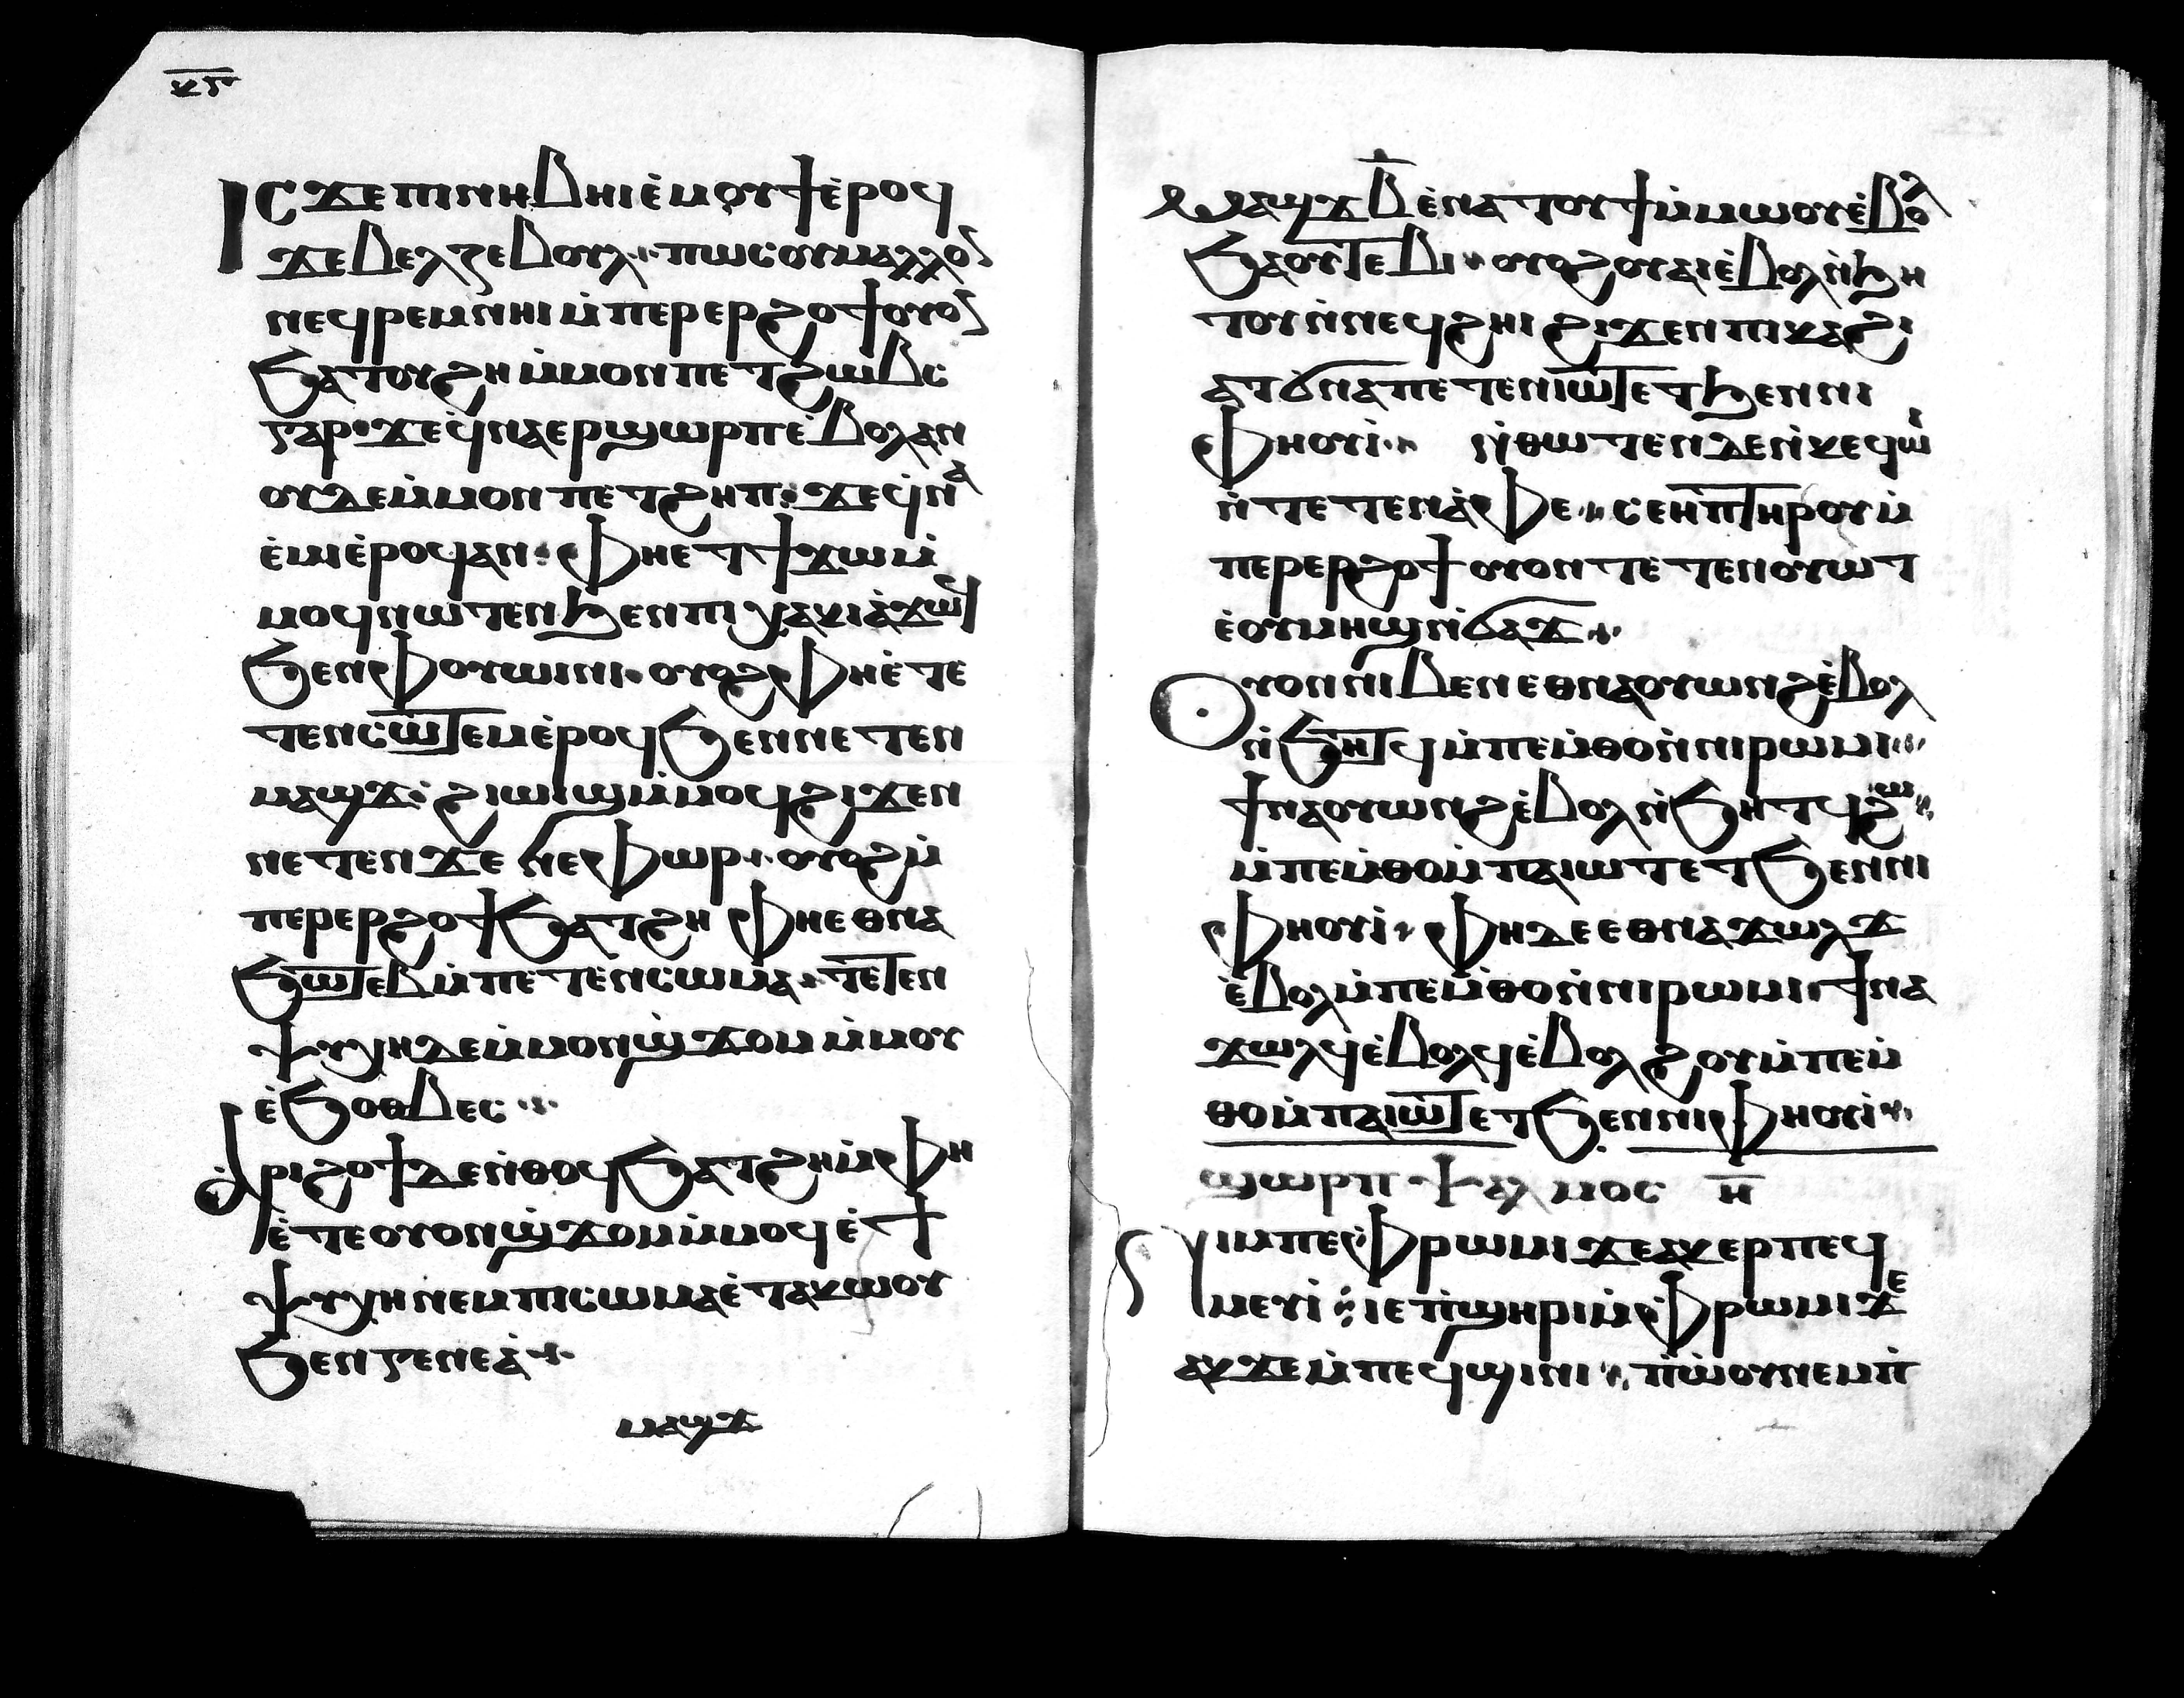 ⲕⲋ
ⲓⲥϫⲉ ⲡⲓⲛⲏⲃ ⲛⲏⲓ ⲉ̀ⲙⲟⲩϯ ⲉ̀ⲣⲟϥ
ϫⲉ ⲃⲉⲗⲍⲉⲃⲟⲩⲗ ⲡⲱⲥ ⲟⲩⲙⲁⲗⲗⲟ
ⲛⲉϥⲣⲉⲙⲛⲏⲓ ⲙ̀ⲡⲉⲣⲉⲣϩⲟϯ ⲟⲩⲟ
ϧⲁⲧⲟⲩϩⲏ ⲙ̀ⲙⲟⲛ ⲡⲉⲧϩⲱⲃⲥ
ⲅⲁⲣ ϫⲉ ϥ̀ⲛⲁⲉⲣϣⲱⲣⲡ ⲉ̀ⲃⲟⲗ ⲁⲛ
ⲟⲩⲇⲉ ⲙ̀ⲙⲟⲛ ⲡⲉⲧϩⲏⲡ ϫⲉ ϥ̀ⲛⲁ
ⲉ̀ⲙⲓ ⲉ̀ⲣⲟϥ ⲁⲛ ⲫⲏ ⲉⲧϯϫⲱ ⲙ̀
ⲙⲟϥ ⲛⲱⲧⲉⲛ ϧⲉⲛ ⲡⲓⲭⲁⲕⲓ ⲁ̀ϫⲟϥ
ϧⲉⲛ ⲫⲟⲩⲱⲓⲛⲓ ⲟⲩⲟϩ ⲫⲏ ⲉ̀ⲧⲉ
ⲧⲉⲛⲥⲱⲧⲉⲙ ⲉ̀ⲣⲟϥ ϧⲉⲛ ⲛⲉⲧⲉⲛ
ⲙⲁϣϫ ϩⲓⲱⲓϣ ⲙ̀ⲙⲟϥ ϩⲓϫⲉⲛ
ⲛⲉⲧⲉⲛϫⲉⲛⲉⲫⲱⲣ ⲟⲩⲟϩ ⲙ̀
ⲡⲉⲣⲉⲣϩⲟϯ ϧⲁⲧϩⲏ ⲫⲏ ⲉⲑⲛⲁ
ϧⲱⲧⲉⲃ ⲙ̀ⲡⲉⲧⲉⲛⲥⲱⲙⲁ ⲧⲉⲧⲉⲛ
ⲯⲩⲭⲏ ⲇⲉ ⲙ̀ⲙⲟⲛ ϣ̀ϫⲟⲙ ⲙ̀ⲙⲟⲩ
ⲉ̀ϧⲟⲑⲃⲉⲥ
ⲁ̀ⲣⲓϩⲟϯ ⲇⲉ ⲛ̀ⲑⲟϥ ϧⲁⲧϩⲏ ⲙ̀ⲫⲏ
ⲉ̀ⲧⲉ ⲟⲩⲟⲛ ϣ̀ϫⲟⲙ ⲙ̀ⲙⲟϥ ⲉ̀ϯ
ⲯⲩⲭⲏ ⲛⲉⲙ ⲡⲓⲥⲱⲙⲁ ⲉ̀ⲧⲁⲕⲱⲟⲩ
ϧⲉⲛ ⲅⲉⲛⲉⲁ̀
ⲙⲁϣϫ
ⲙⲏ ⲙⲁϣϫ ⲃ̄ ⲉ̀ⲛⲁⲧⲟⲩϯ ⲙ̀ⲙⲱⲟⲩ ⲉ̀ⲃⲟⲗ
ϧⲁ ⲟⲩⲧⲉⲃⲓ ⲟⲩⲟϩ ⲟⲩⲁⲓ ⲉ̀ⲃⲟⲗ ⲛ̀ϧⲏ
ⲧⲟⲩ ⲛ̀ⲛⲉϥϩⲏⲓ ϩⲓϫⲉⲛ ⲡⲓⲕⲁϩⲓ
ⲁⲧϭⲛⲉ ⲡⲉⲧⲉⲛⲓⲱⲧ ⲉⲧϧⲉⲛ ⲛⲓ
ⲫⲏⲟⲩⲓ̀ ⲛ̀ⲑⲱⲧⲉⲛ ⲇⲉ ⲛ̀ⲕⲉϥⲱⲓ
ⲛ̀ⲧⲉ ⲧⲉⲛⲁ̀ⲫⲉ ⲥⲉⲏⲡ ⲧⲏⲣⲟⲩ ⲙ̀
ⲡⲉⲣⲉⲣϩⲟϯ ⲟⲩⲟⲛ ⲧⲉⲧⲉⲛⲟⲩⲱⲧ
ⲉ̀ⲟⲩⲙⲏϣ ⲛ̀ϭⲁϫ
ⲟⲩⲟⲛ ⲛⲓⲃⲉⲛ ⲉⲑⲛⲁⲟⲩⲱⲛϩ ⲉ̀ⲃⲟⲗ
ⲛ̀ϧⲏⲧϥ ⲙ̀ⲡⲉⲙ̀ⲑⲟ ⲛ̀ⲛⲓⲣⲱⲙⲓ
ϯⲛⲁⲟⲩⲱⲛϩ ⲉ̀ⲃⲟⲗ ⲛ̀ϧⲏⲧϥ ϩⲱ
ⲙ̀ⲡⲉⲙ̀ⲑⲟ ⲙ̀ⲡⲁⲓⲱⲧ ⲉⲧϧⲉⲛ ⲛⲓ
ⲫⲏⲟⲩⲓ̀ ⲫⲏ ⲇⲉ ⲉⲑⲛⲁϫⲱⲗϫ
ⲉ̀ⲃⲟⲗ ⲙ̀ⲡⲉⲙ̀ⲑⲟ ⲛ̀ⲛⲓⲣⲱⲙⲓ ϯⲛⲁ
ϫⲱⲗϥ ⲉ̀ⲃⲟⲗϥ ⲉ̀ⲃⲟⲗ ϩⲟⲩ ⲙ̀ⲡⲉⲙ̀
ⲑⲟ ⲙ̀ⲡⲁⲓⲱⲧ ⲉⲧϧⲉⲛ ⲛⲓⲫⲏⲟⲩⲓ̀
ϣⲱⲣⲡ ⲯⲁⲗⲙⲟⲥ ⲏ̄
ⲛⲓⲙ ⲡⲉ ⲫ̀ⲣⲱⲙⲓ ϫⲉ ⲁⲕⲉⲣⲡⲉϥ
ⲙⲉⲩⲓ̀ ⲓⲉ ⲡ̀ϣⲏⲣⲓ ⲙ̀ⲫ̀ⲣⲱⲙⲓ ϫⲉ
ⲁⲕϫⲉⲙ̀ⲡⲉϥϣⲓⲛⲓ ⲡ̀ⲱ̀ⲟⲩ ⲛⲉⲙ ⲡ̀